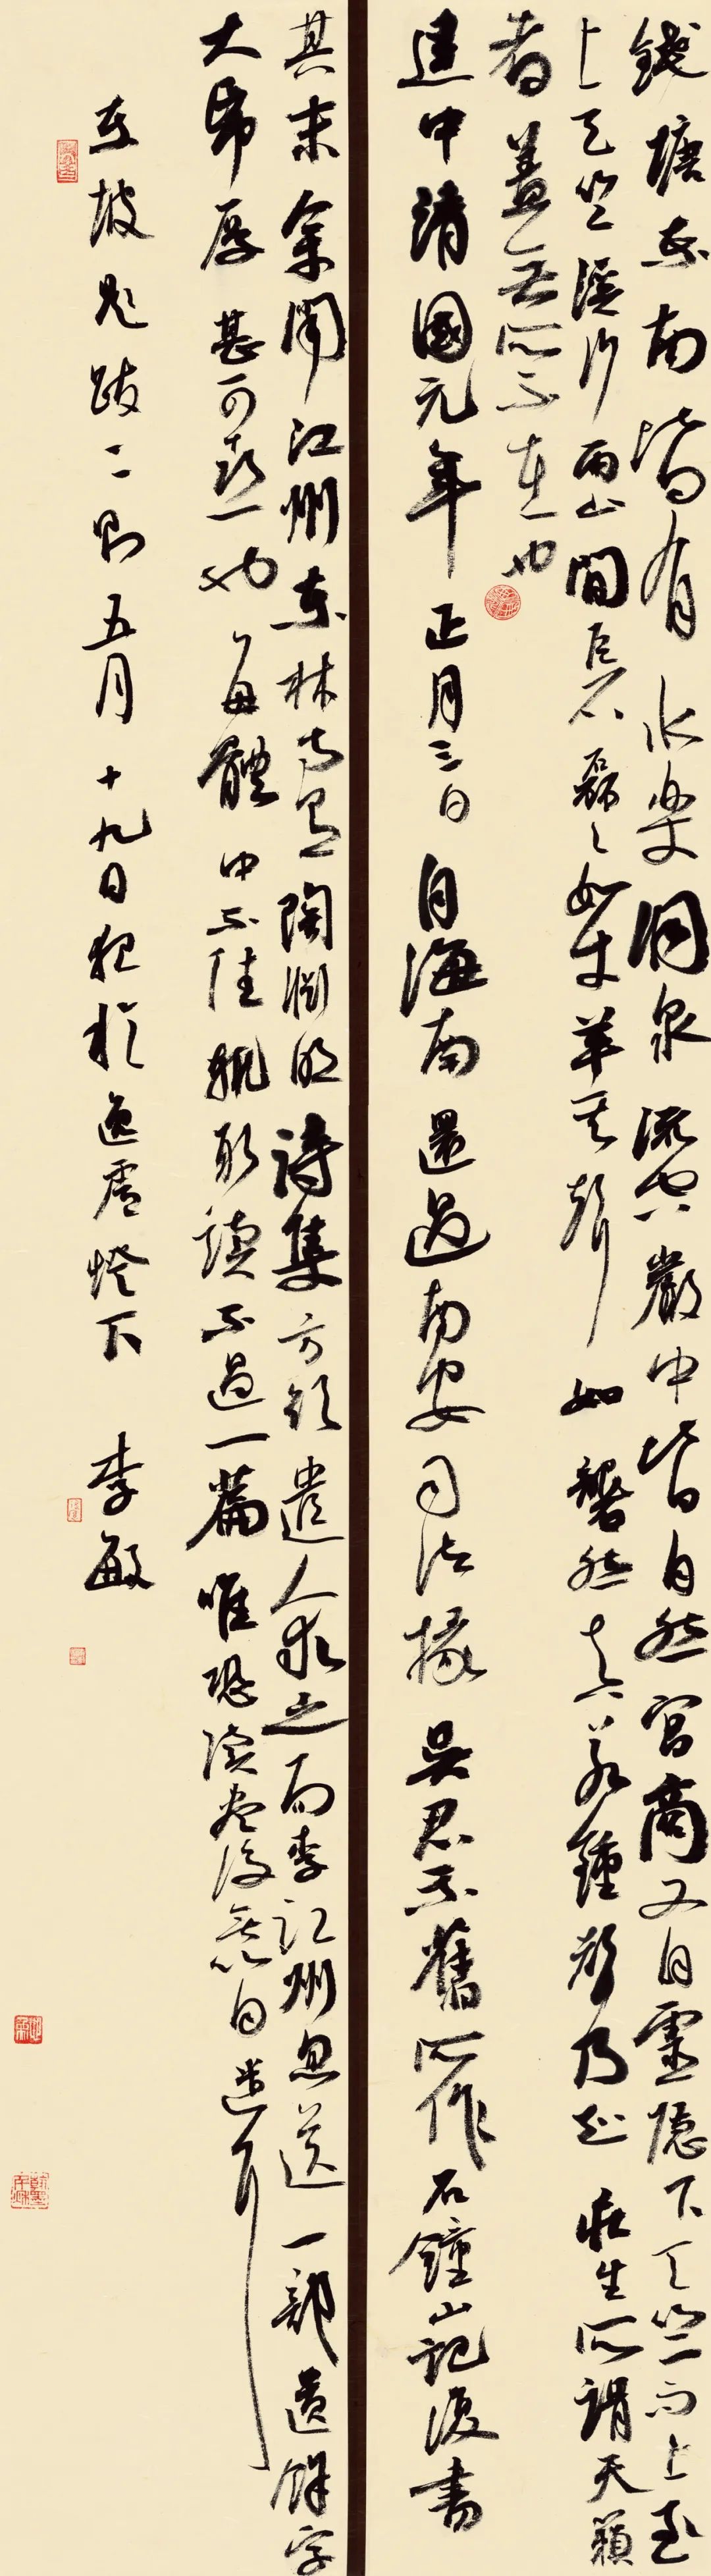 錢塘東南皆有水樂洞泉流空巖中皆自然宮商又自靈隱下天竺而上至
上天竺溪行兩山間巨石磊々如牛羊其聲如磬然真若鍾聲乃知莊生所謂天籟
者蓋無所不在也
建中靖國元年正月三日自海南還過南安司法掾吳君示舊所作石鐘山記復書
其末余聞江州東林寺有陶淵明詩集方欲遣人求之而李江州忽送一部遺餘字
大帋厚甚可喜也每體中不佳輒取讀不過一篇唯恐讀盡後無以自遣耳
東坡題跋二則五月十九日夜於逸廬燈下 李敏